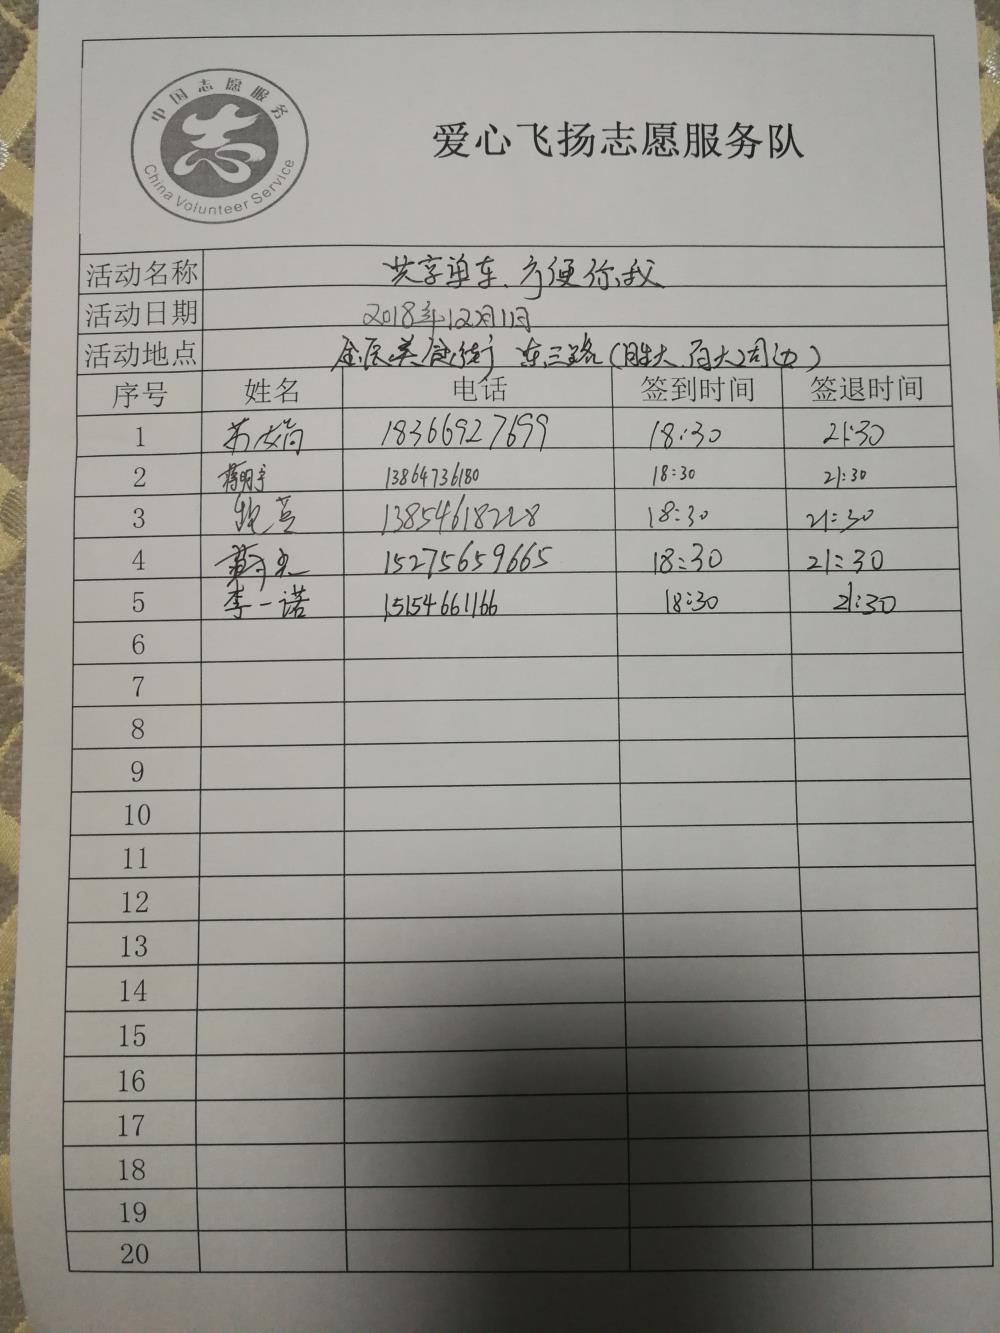 中国志愿服务
志
China Volunteer Service
爱心飞扬志愿服务队
活动名称 共享单车、方便你我
活动日期 2018年12月11日
活动地点 东三路(胜大、百大周边)
序号 姓名 电话 签到时间 签退时间
1 18366927699 18:30 21:30
2 13864736180 18:30 21:30
3 13854618228 18:30 21:30
4 15275659665 18:30 21:30
5 李一诺 15154661166 18:30 21:30
6
7
8
9
10
11
12
13
14
15
16
17
18
19
20